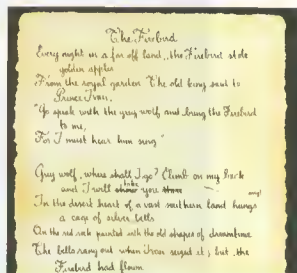 The Firebird
Every night in a far off land, the Firebird stole
golden apples
From the royal garden The old king said to
Prince Ivan,
"Go speak with the grey wolf and bring the Firebird
to me,
For I must hear him sing"
Grey wolf, where shall I go? Climb on my back
and I will take you
sing!
In the desert heart of a vast southern land hangs
a cage of silver bells
On the red rock painted with the old shapes of dreamtime
The bells rang out when Ivan seized it; but the
Firebird had flown